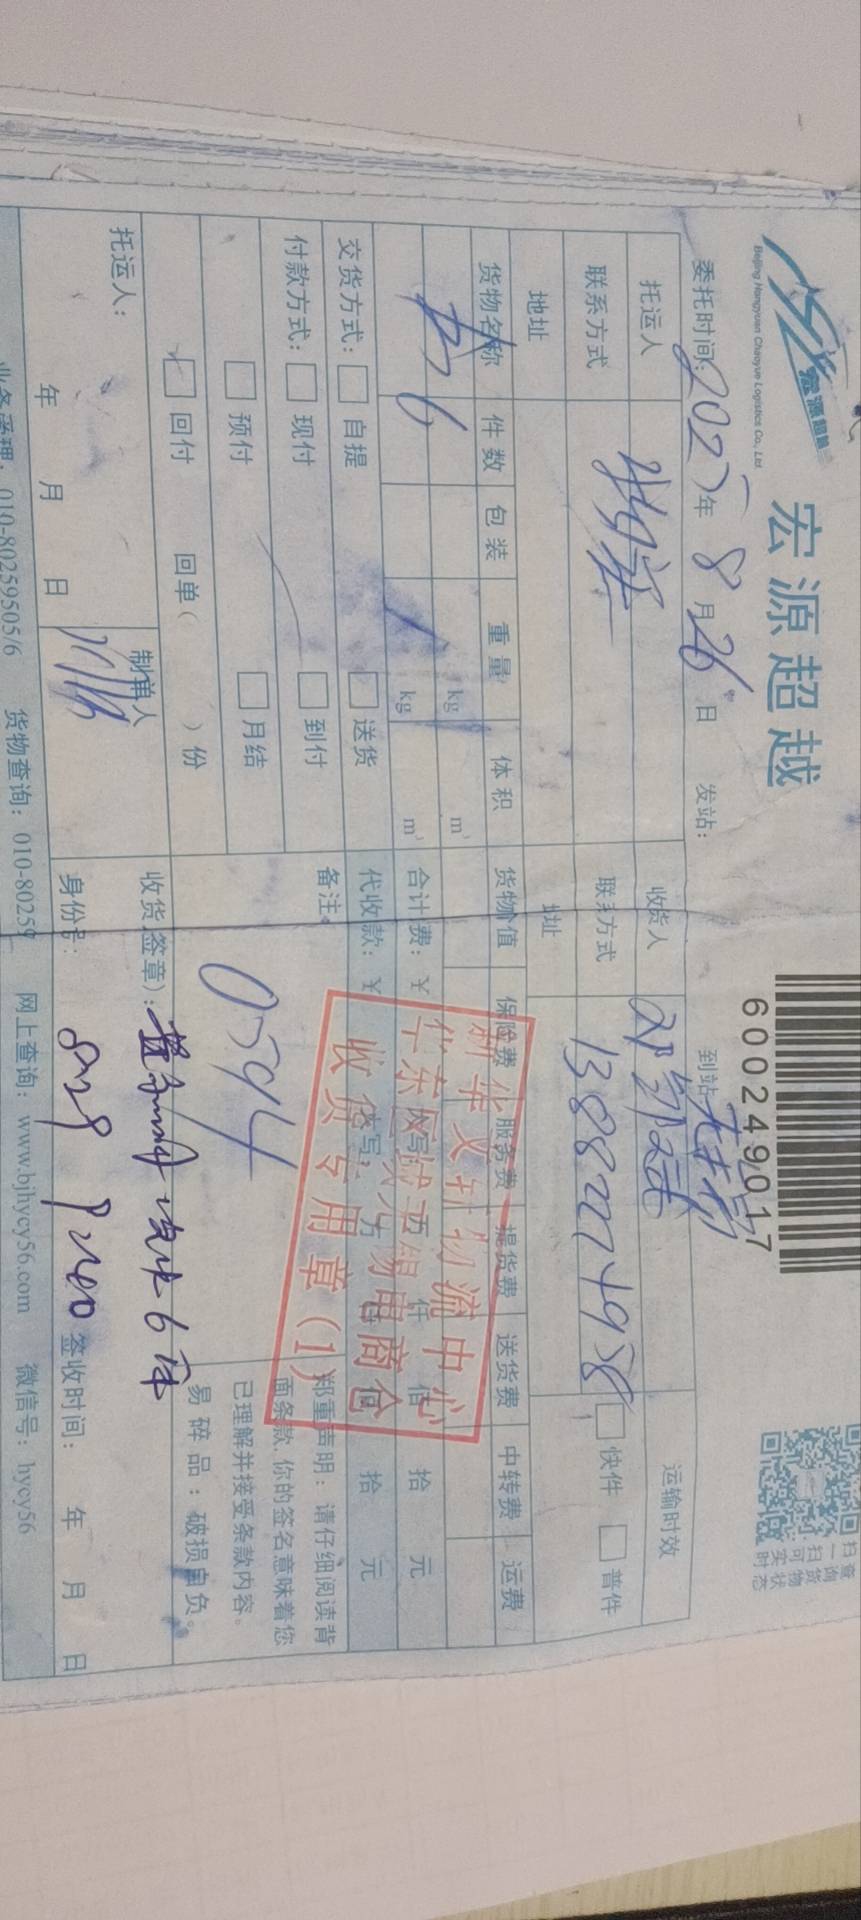 宏源超越
Beijing Hongyuan Chaoyue Logistics Co., Ltd.
宏源超越
6002499017
扫一扫 查询货物实时状态
委托时间: 2025年 8月26日 发站: 到站: 无锡
托运人 收货人 运输时效
联系方式 联系方式 快件 普件
地址 地址
货物名称 件数 包装 重量 体积 货物价值 保险费 服务费 提货费 送货费 中转费 运费
书 6 kg m³
kg m³ 合计费: ¥ 大写: 万 仟 佰 拾 元
交货方式: 自提 送货 代收款: ¥ 大写: 万 仟 佰 拾 元
付款方式: 现付 到付 备注:
预付 月结
回付 回单( )份
0594
新华文轩物流中心
华东区域无锡电商仓
收货专用章(1)
郑重声明: 请仔细阅读背
面条款, 你的签名意味着您
已理解并接受条款内容。
易碎品: 破损自负。
托运人: 制单人 收货(签章): 6件
年 月 日 身份号: 签收时间: 年 月 日
业务受理: 010-80259505/6 货物查询: 010-80259 网上查询: www.bjhycy56.com 微信号: hycy56